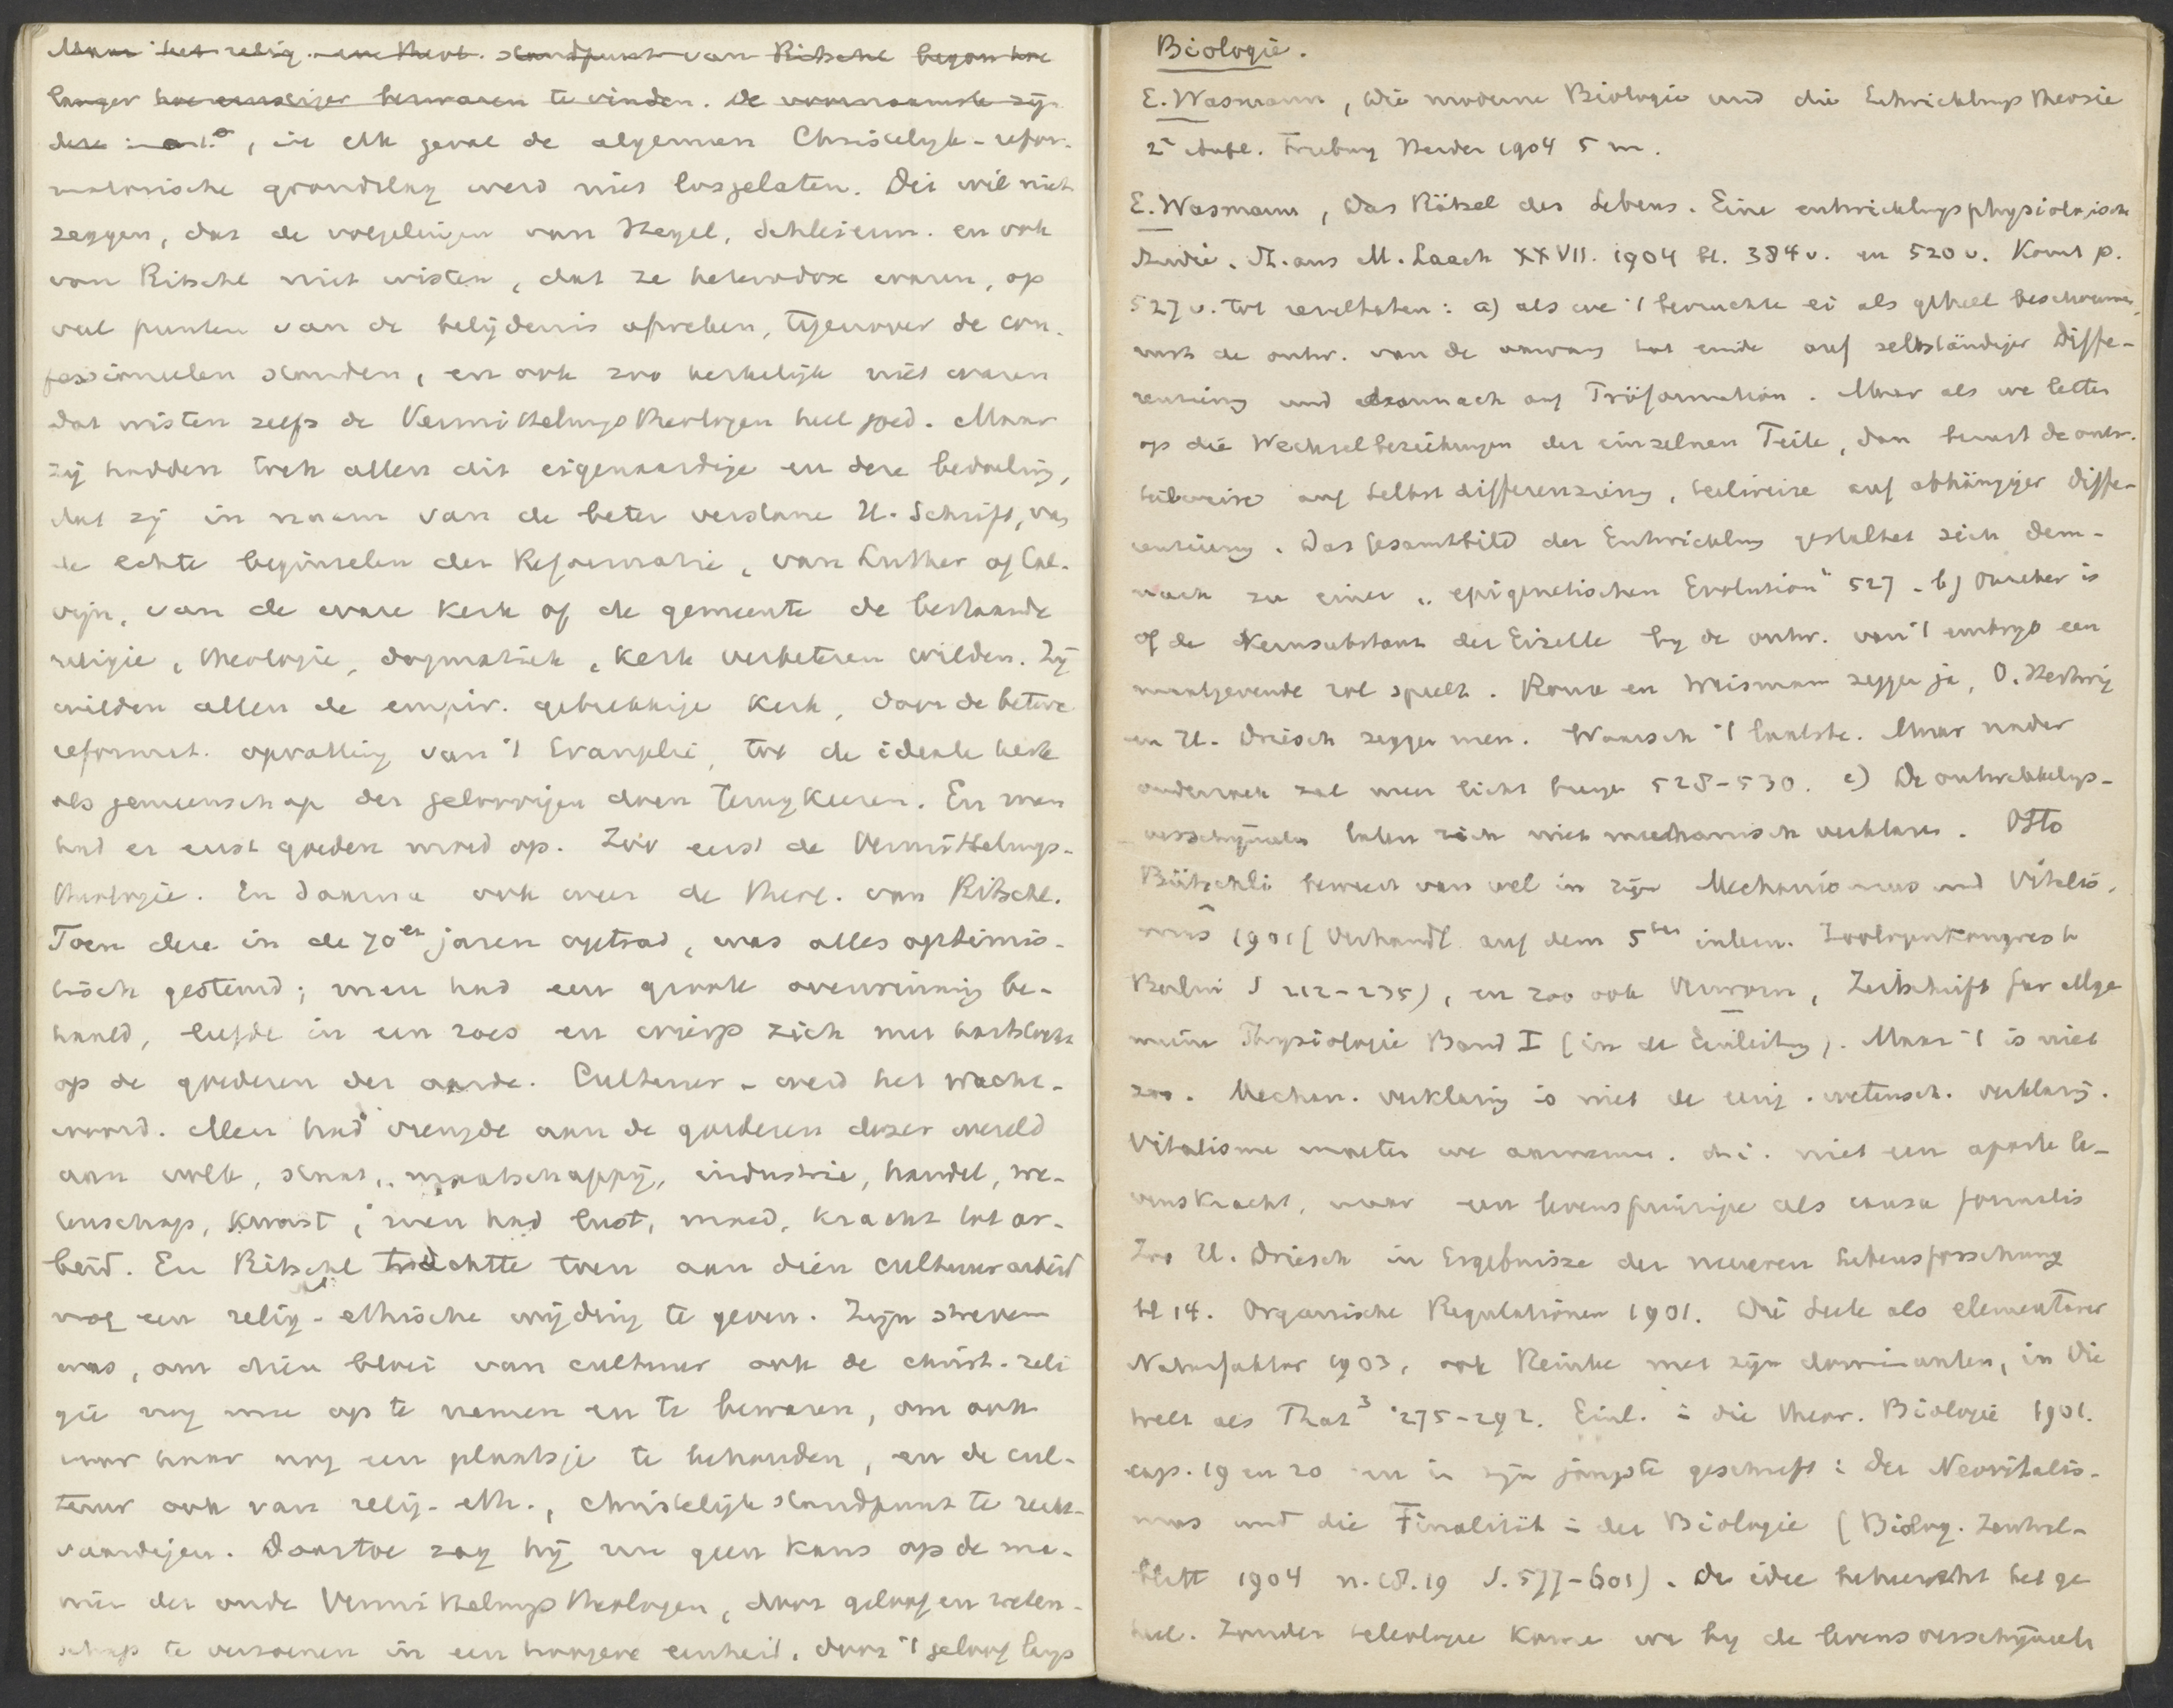 Maar het relig. en theol. standpunt van Ritschl begon hoe
langer hoe ernstiger bezwaren te vinden. De voornaamste zijn
deze : , in elk geval de algemeen Christelijk-refor-
matorische grondslag werd niet losgelaten. Dit wil niet
zeggen, dat de volgelingen van Hegel, Schleierm. en ook
van Ritschl niet wisten, dat ze heterodox waren, op
veel punten van de belijdenis afweken, tegenover de con-
fessioneelen stonden, en ook zoo kerkelijk niet waren
dat wisten zelfs de Vermittelungstheologen heel goed. Maar
zij hadden toch allen dit eigenaardige en deze bedoeling,
dat zij in naam van de beter verstane H. Schrift, van
de echte beginselen der Reformatie, van Luther of Cal-
vijn, van de ware kerk of de gemeente de bestaande
religie, theologie, dogmatiek, kerk verbeteren wilden. Zij
wilden allen de empir. gebrekkige kerk, door de betere
reformat. opvatting van 't Evangelie, tot de ideale kerk
als gemeenschap der geloovigen doen terugkeeren. En men
had er eerst goeden moed op. Zoo eerst de Vermittelungs-
theologie. En daarna ook weer de theol. van Ritschl.
Toen deze in de 70er jaren optrad, was alles optimis-
tisch gestemd; men had een groote overwinning be-
haald, leefde in een roes en wierp zich met hartstocht
op de goederen der aarde. Cultuur - werd het wacht-
woord. Men had vreugde aan de goederen dezer wereld
aan volk, staat, maatschappij, industrie, handel, we-
tenschap, kunst; men had lust, moed, kracht tot ar-
beid. En Ritschl trachtte toen aan dien cultuurarbeid
nog een relig-ethische wijding te geven. Zijn streven
was, om dien bloei van cultuur ook de christ. reli
gie nog mee op te nemen en te bewaren, om ook
voor haar nog een plaatsje te behouden, en de cul-
tuur ook van relig-eth., christelijk standpunt te recht-
vaardigen. Daartoe zag hij nu geen kans op de ma-
nier der oude Vermittelungstheologen, door geloof en weten-
schap te verzoenen in een hoogere eenheid, door 't geloof langs
Biologie.
E. Wasmann, Die moderne Biologie und die Entwicklungstheorie
2e Aufl. Freiburg Herder 1904 5 m.
E. Wasmann, Das Rätsel des Lebens. Eine entwicklungsphysiologische
Studie. St. aus M. Laach XXVII. 1904 bl. 384v. en 520v. Komt p.
527v. tot resultaten: a) als we 't bevruchte ei als geheel beschouwen,
rust de ontw. van de aanvang tot einde auf selbständiger Diffe-
renzierung und darnach auf Präformation. Maar als we letten
op die Wechselbeziehungen der einzelnen Teile, dan berust de ontw.
teilweise auf Selbstdifferenzierung, teilweise auf abhängiger Diffe-
renzierung. Das Gesamtbild der Entwicklung gestaltet sich dem-
nach zu einer „epigenetischen Evolution" 527. b) Onzeker is
of de Kernsubstanz der Eizelle bij de ontw. van 't embryo een
maatgevende rol speelt. Roux en Weismann zeggen ja, O. Hertwig
en H. Driesch zeggen neen. Waarsch 't laatste. Maar nader
onderzoek zal meer licht brengen 528-530. c) De ontwikkelings-
verschijnselen laten zich niet mechanisch verklaren. Otto
Bütschli beweert van wel in zijn Mechanismus und Vitalis-
mus 1901 (Verhandl. auf dem 5ten intern. Zoologenkongress
Berlin S 212-235), en zoo ook Verworn, Zeitschrift für allge
meine Physiologie Band I (in der Einleitung). Maar 't is niet
zoo. Mechan. verklaring is niet de eenig. wetensch. verklaring.
Vitalisme moeten we aannemen. d.i. niet een aparte le-
venskracht, maar een levensprincipe als causa formalis
Zoo H. Driesch in Ergebnisse der neueren Lebensforschung
bl 14. Organische Regulationen 1901. Die Seele als elementarer
Naturfaktor 1903, ook Reinke met zijn dominanten, in Die
Welt als That³ 275-292. Einl. in die theor. Biologie 1901.
cap. 19 en 20 en in zijn jongste geschrift: Der Neovitalis-
mus und die Finalität in der Biologie (Biolog. Zentral-
blatt 1904 n. 18.19 S. 577-601). De idee beheerscht het ge
heel. Zonder teleologie komen we bij de levensverschijnselen